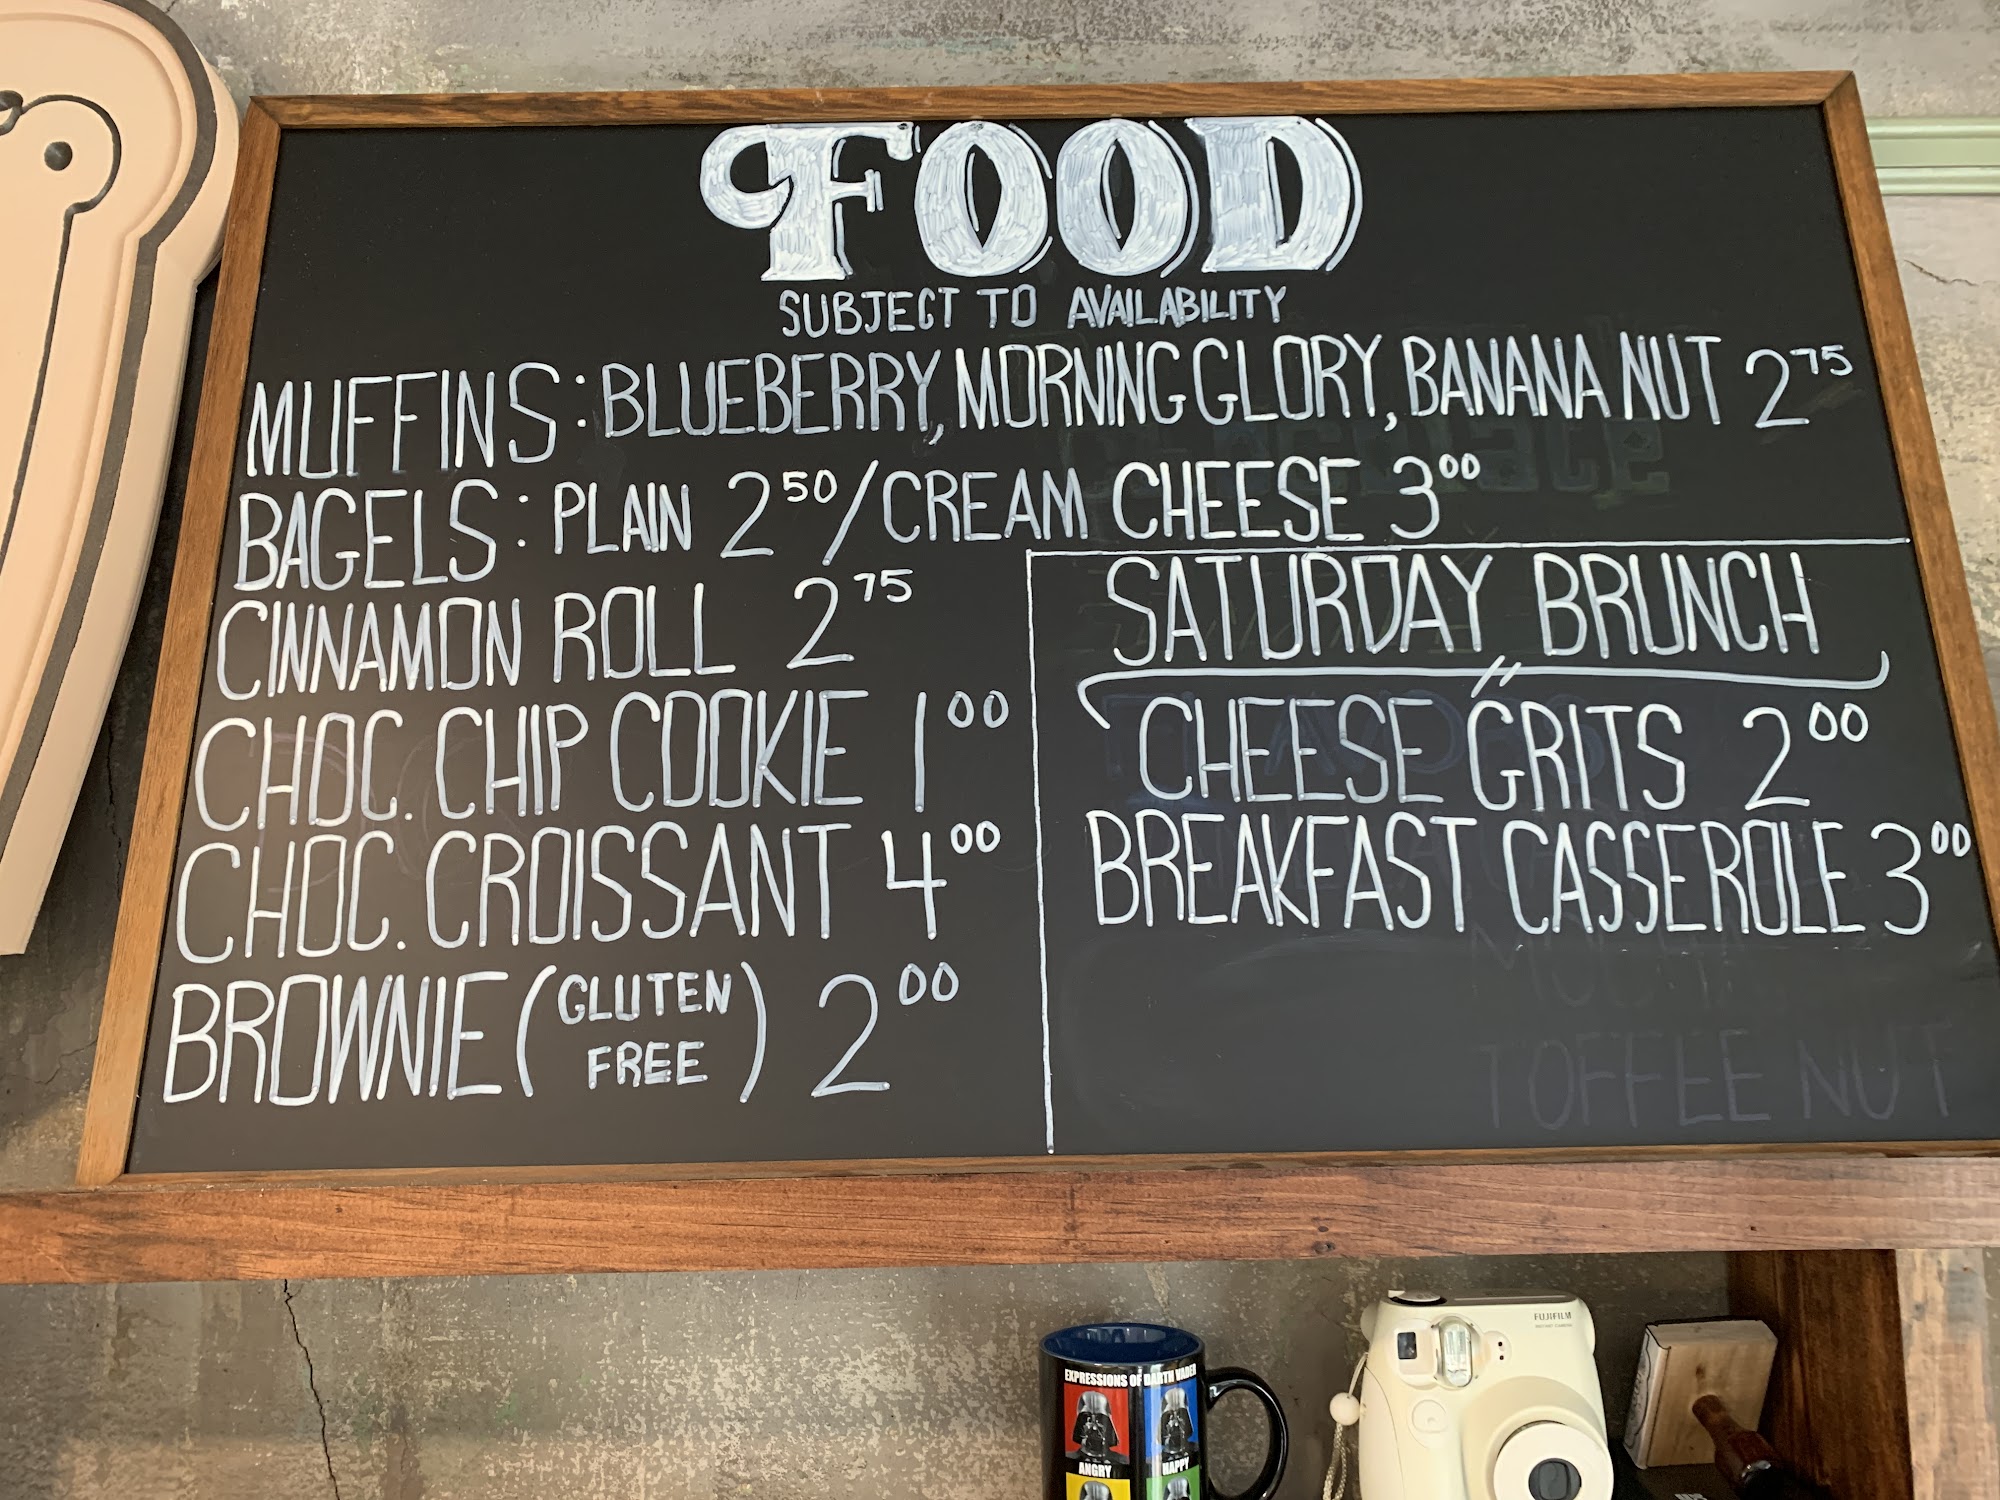 FOOD
SUBJECT TO AVAILABILITY
MUFFINS: BLUEBERRY, MORNING GLORY, BANANA NUT 2 75
BAGELS: PLAIN 2 50 / CREAM CHEESE 3 00
CINNAMON ROLL 2 75
CHOC. CHIP COOKIE 1 00
CHOC. CROISSANT 4 00
BROWNIE (GLUTEN FREE) 2 00
SATURDAY BRUNCH
CHEESE GRITS 2 00
BREAKFAST CASSEROLE 3 00
TOFFEE NUT
EXPRESSIONS OF DARTH VADER
ANGRY HAPPY
FUJIFILM